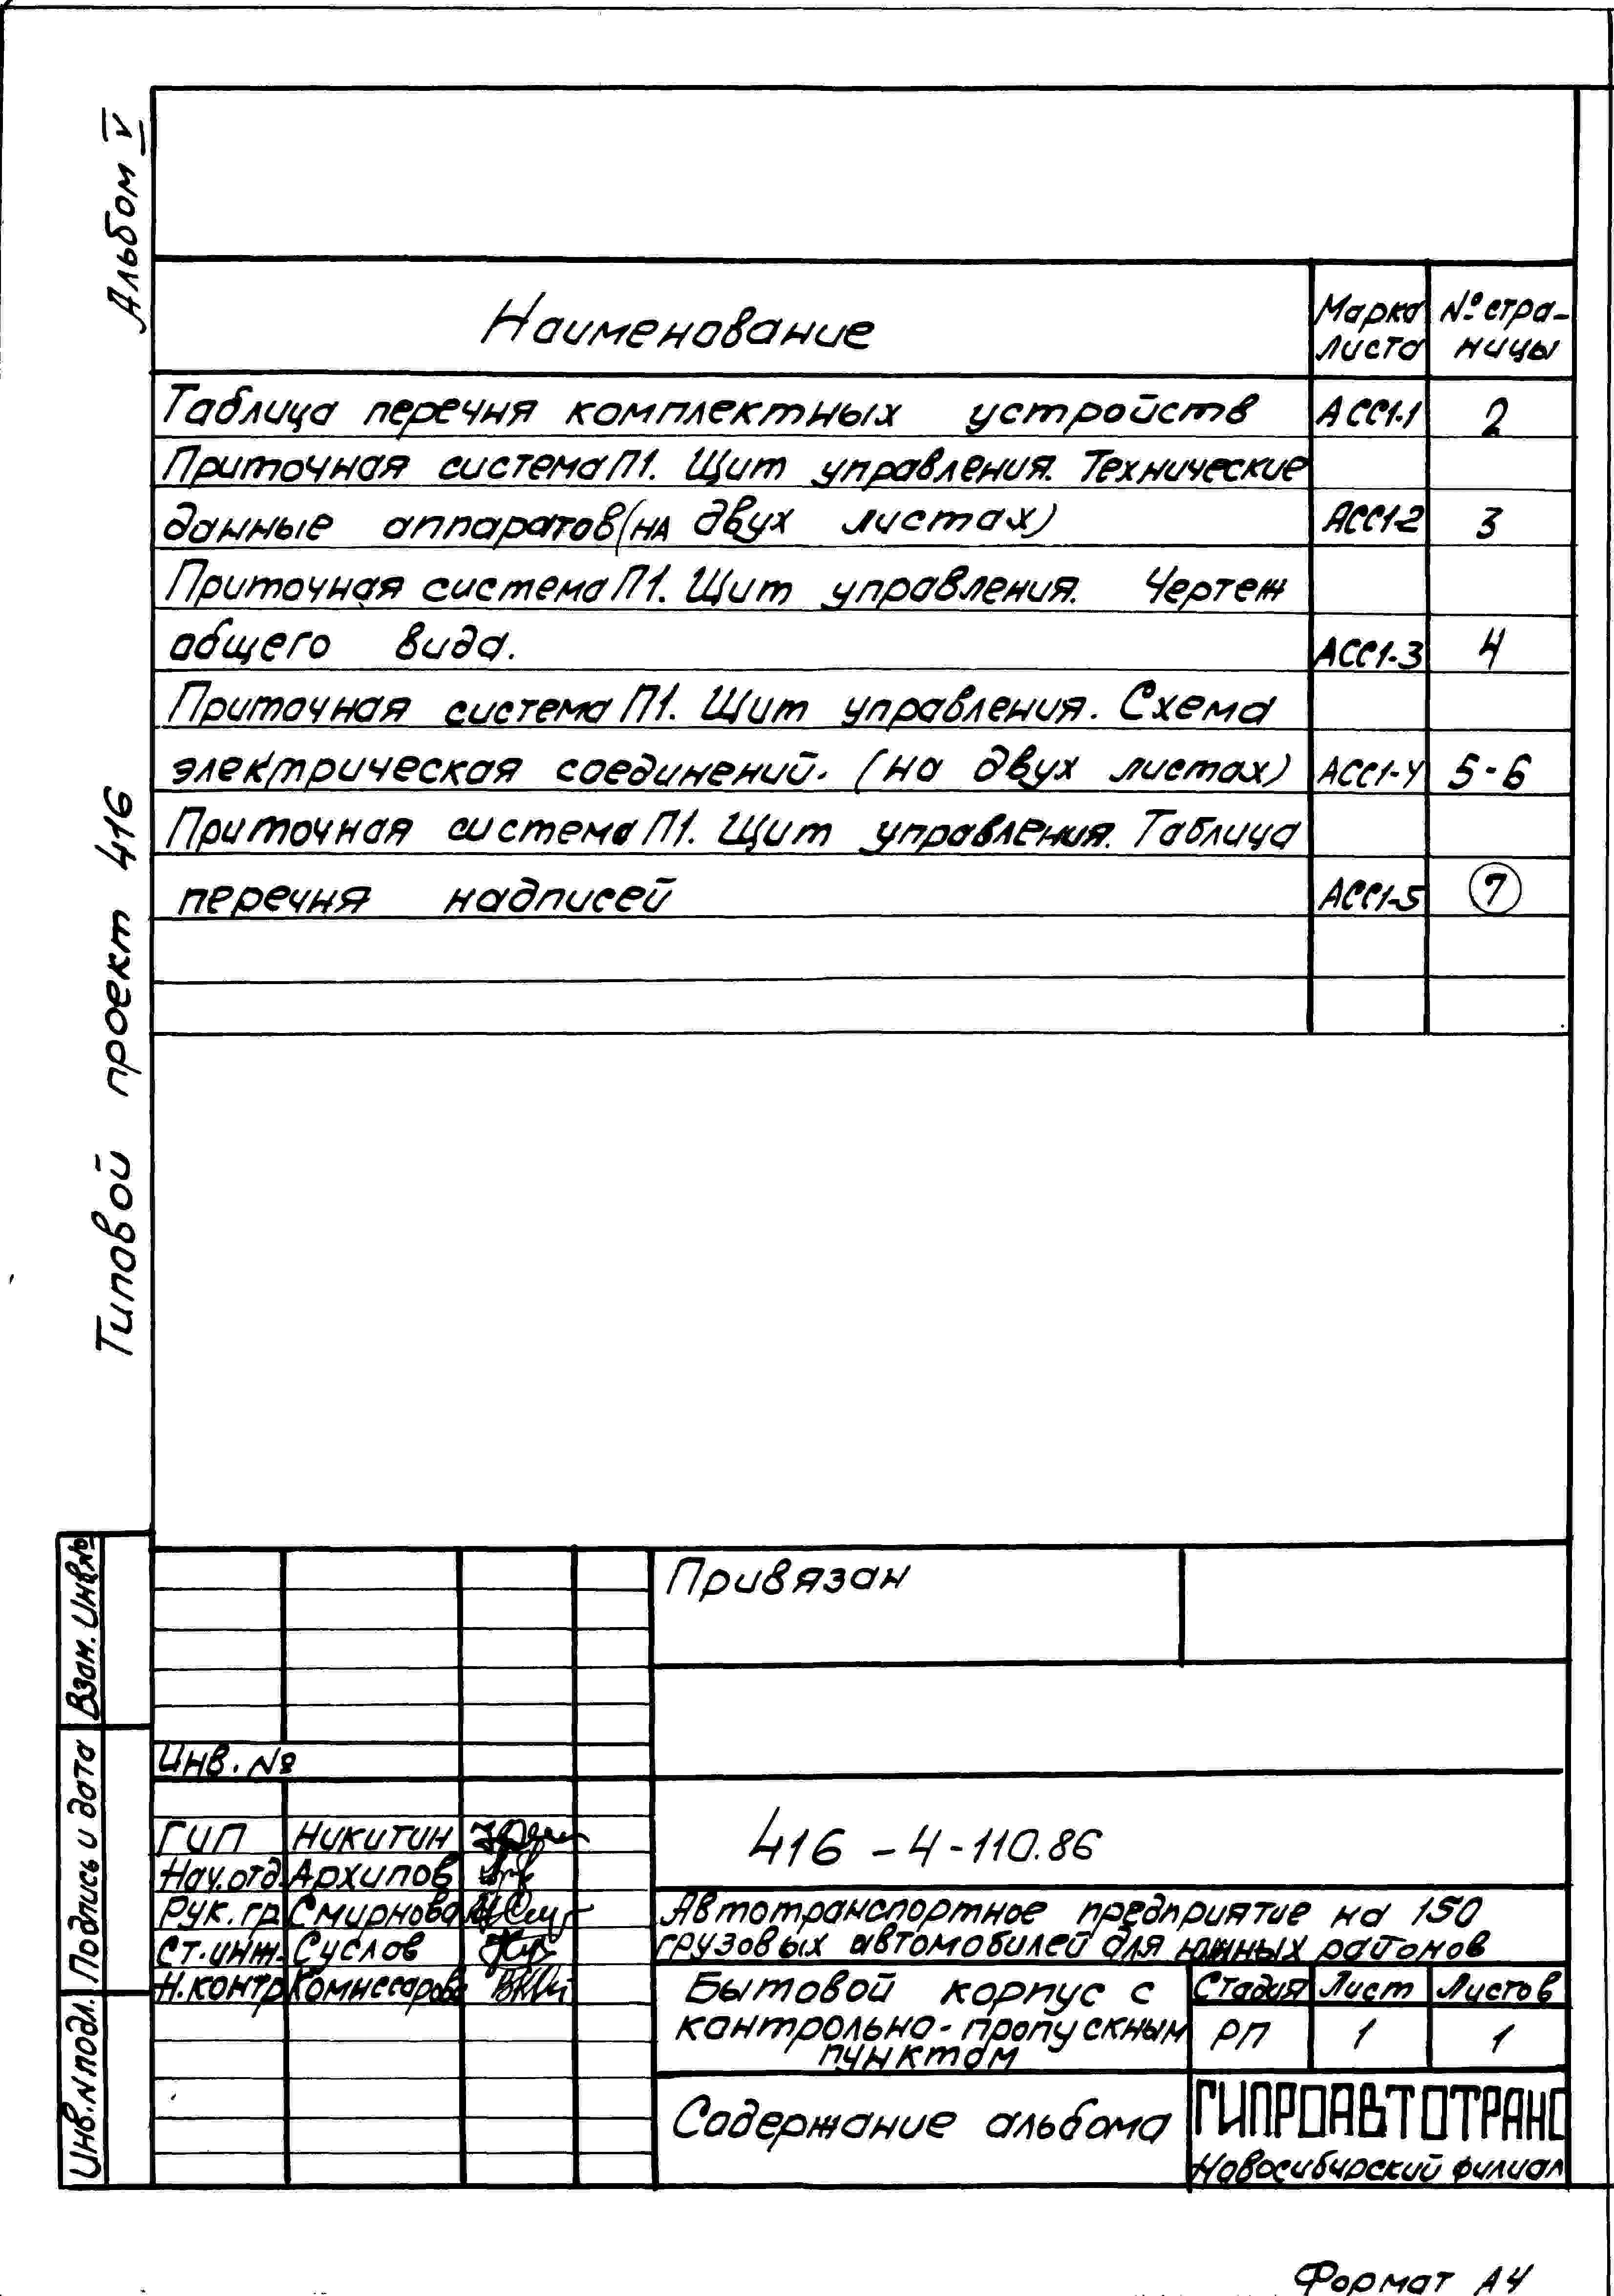 Альбом V
Типовой проект 416
Наименование
Марка листа
№ стра-
ницы
Таблица перечня комплектных устройств АСС1-1 2
Приточная система П1. Щит управления. Технические
данные аппаратов (на двух листах) АСС1-2 3
Приточная система П1. Щит управления. Чертеж
общего вида. АСС1-3 4
Приточная система П1. Щит управления. Схема
электрическая соединений. (на двух листах) АСС1-4 5-6
Приточная система П1. Щит управления. Таблица
перечня надписей АСС1-5 7
Взам. Инв.№
Подпись и дата
Инв. N подл.
Привязан
Инв. №
ГИП Никитин
Нач.отд. Архипов
Рук. гр. Смирнова
Ст. инж. Суслов
Н.контр Комиссарова
416-4-110.86
Автотранспортное предприятие на 150
грузовых автомобилей для южных районов
Бытовой корпус с
контрольно-пропускным
пунктом
Стадия Лист Листов
РП 1 1
Содержание альбома
ГИПРОАВТОТРАНС
Новосибирский филиал
Формат А4